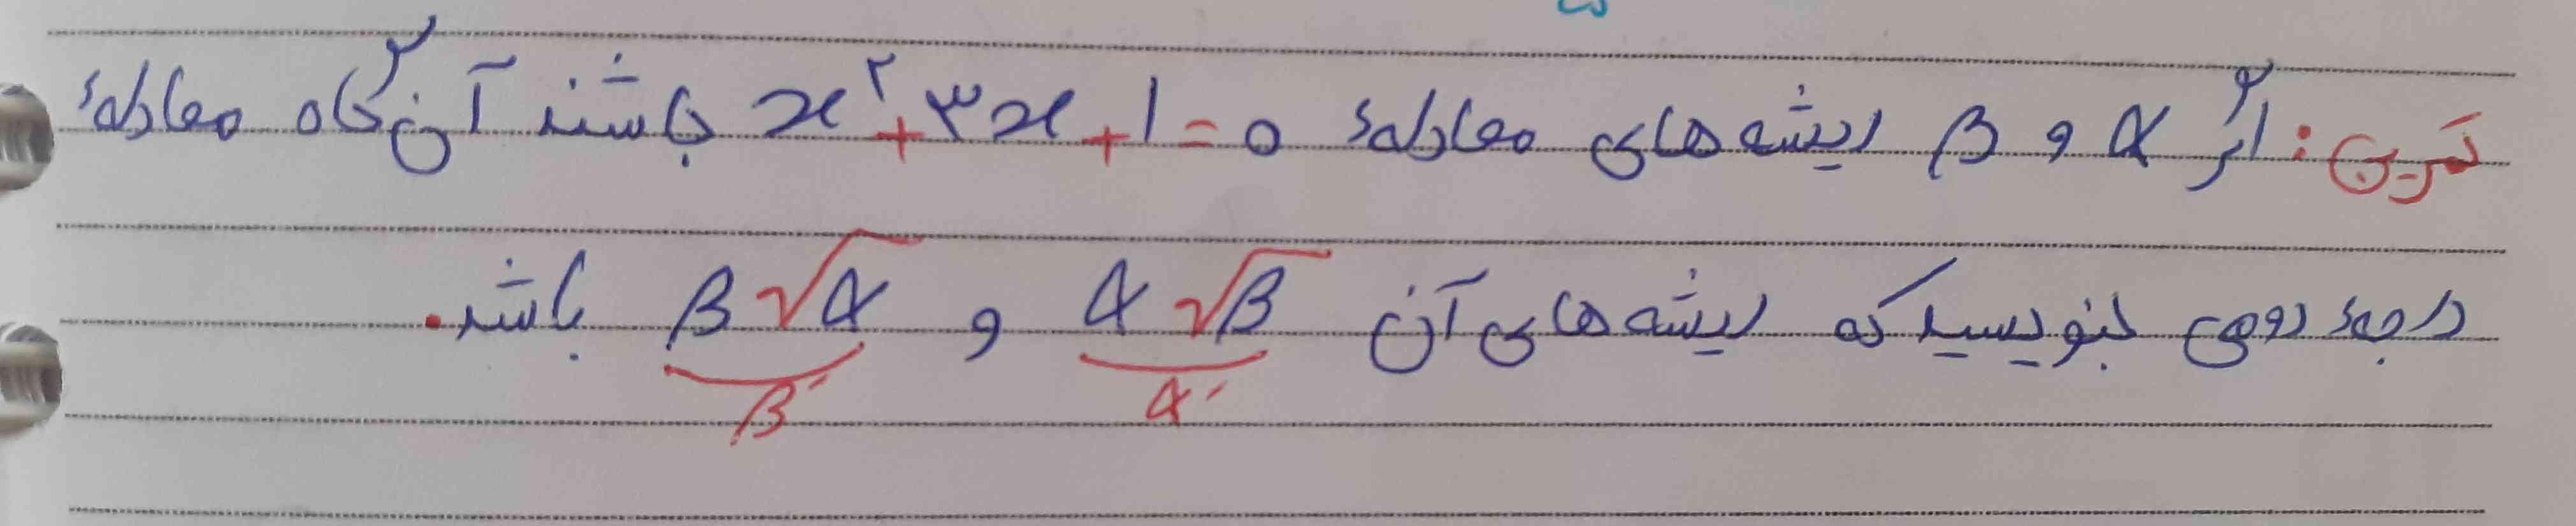 تمرین: اگر α و β ریشه‌های معادلهٔ x²+۳x+۱=۰ باشند آن گاه معادلهٔ
درجهٔ دومی بنویسید که ریشه‌های آن α√β و β√α باشد.
β′ α′